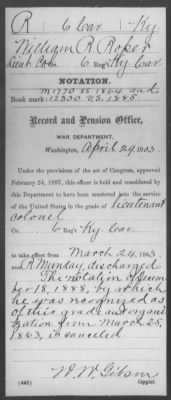 R 6 Cav. Ky.
William R Roper
Lieut Col. 6 Reg't Ky Cav.
NOTATION.
M 1770 VS 1864 and
Book mark: 12330 V.S. 1885.
Record and Pension Office,
WAR DEPARTMENT,
Washington, April 29, 1903.
Under the provisions of the act of Congress, approved
February 24, 1897, this officer is held and considered by
this Department to have been mustered into the service
of the United States in the grade of lieutenant
colonel
Co. 6 Reg't Ky Cav.
to take effect from March 24, 1863
vice R Munday, discharged
The notation of
ber 18, 1888, by which
he was recognized as
of this grade and organi-
zation from March 25,
1863, is canceled
W. W. Gibson
(442) Copyist.